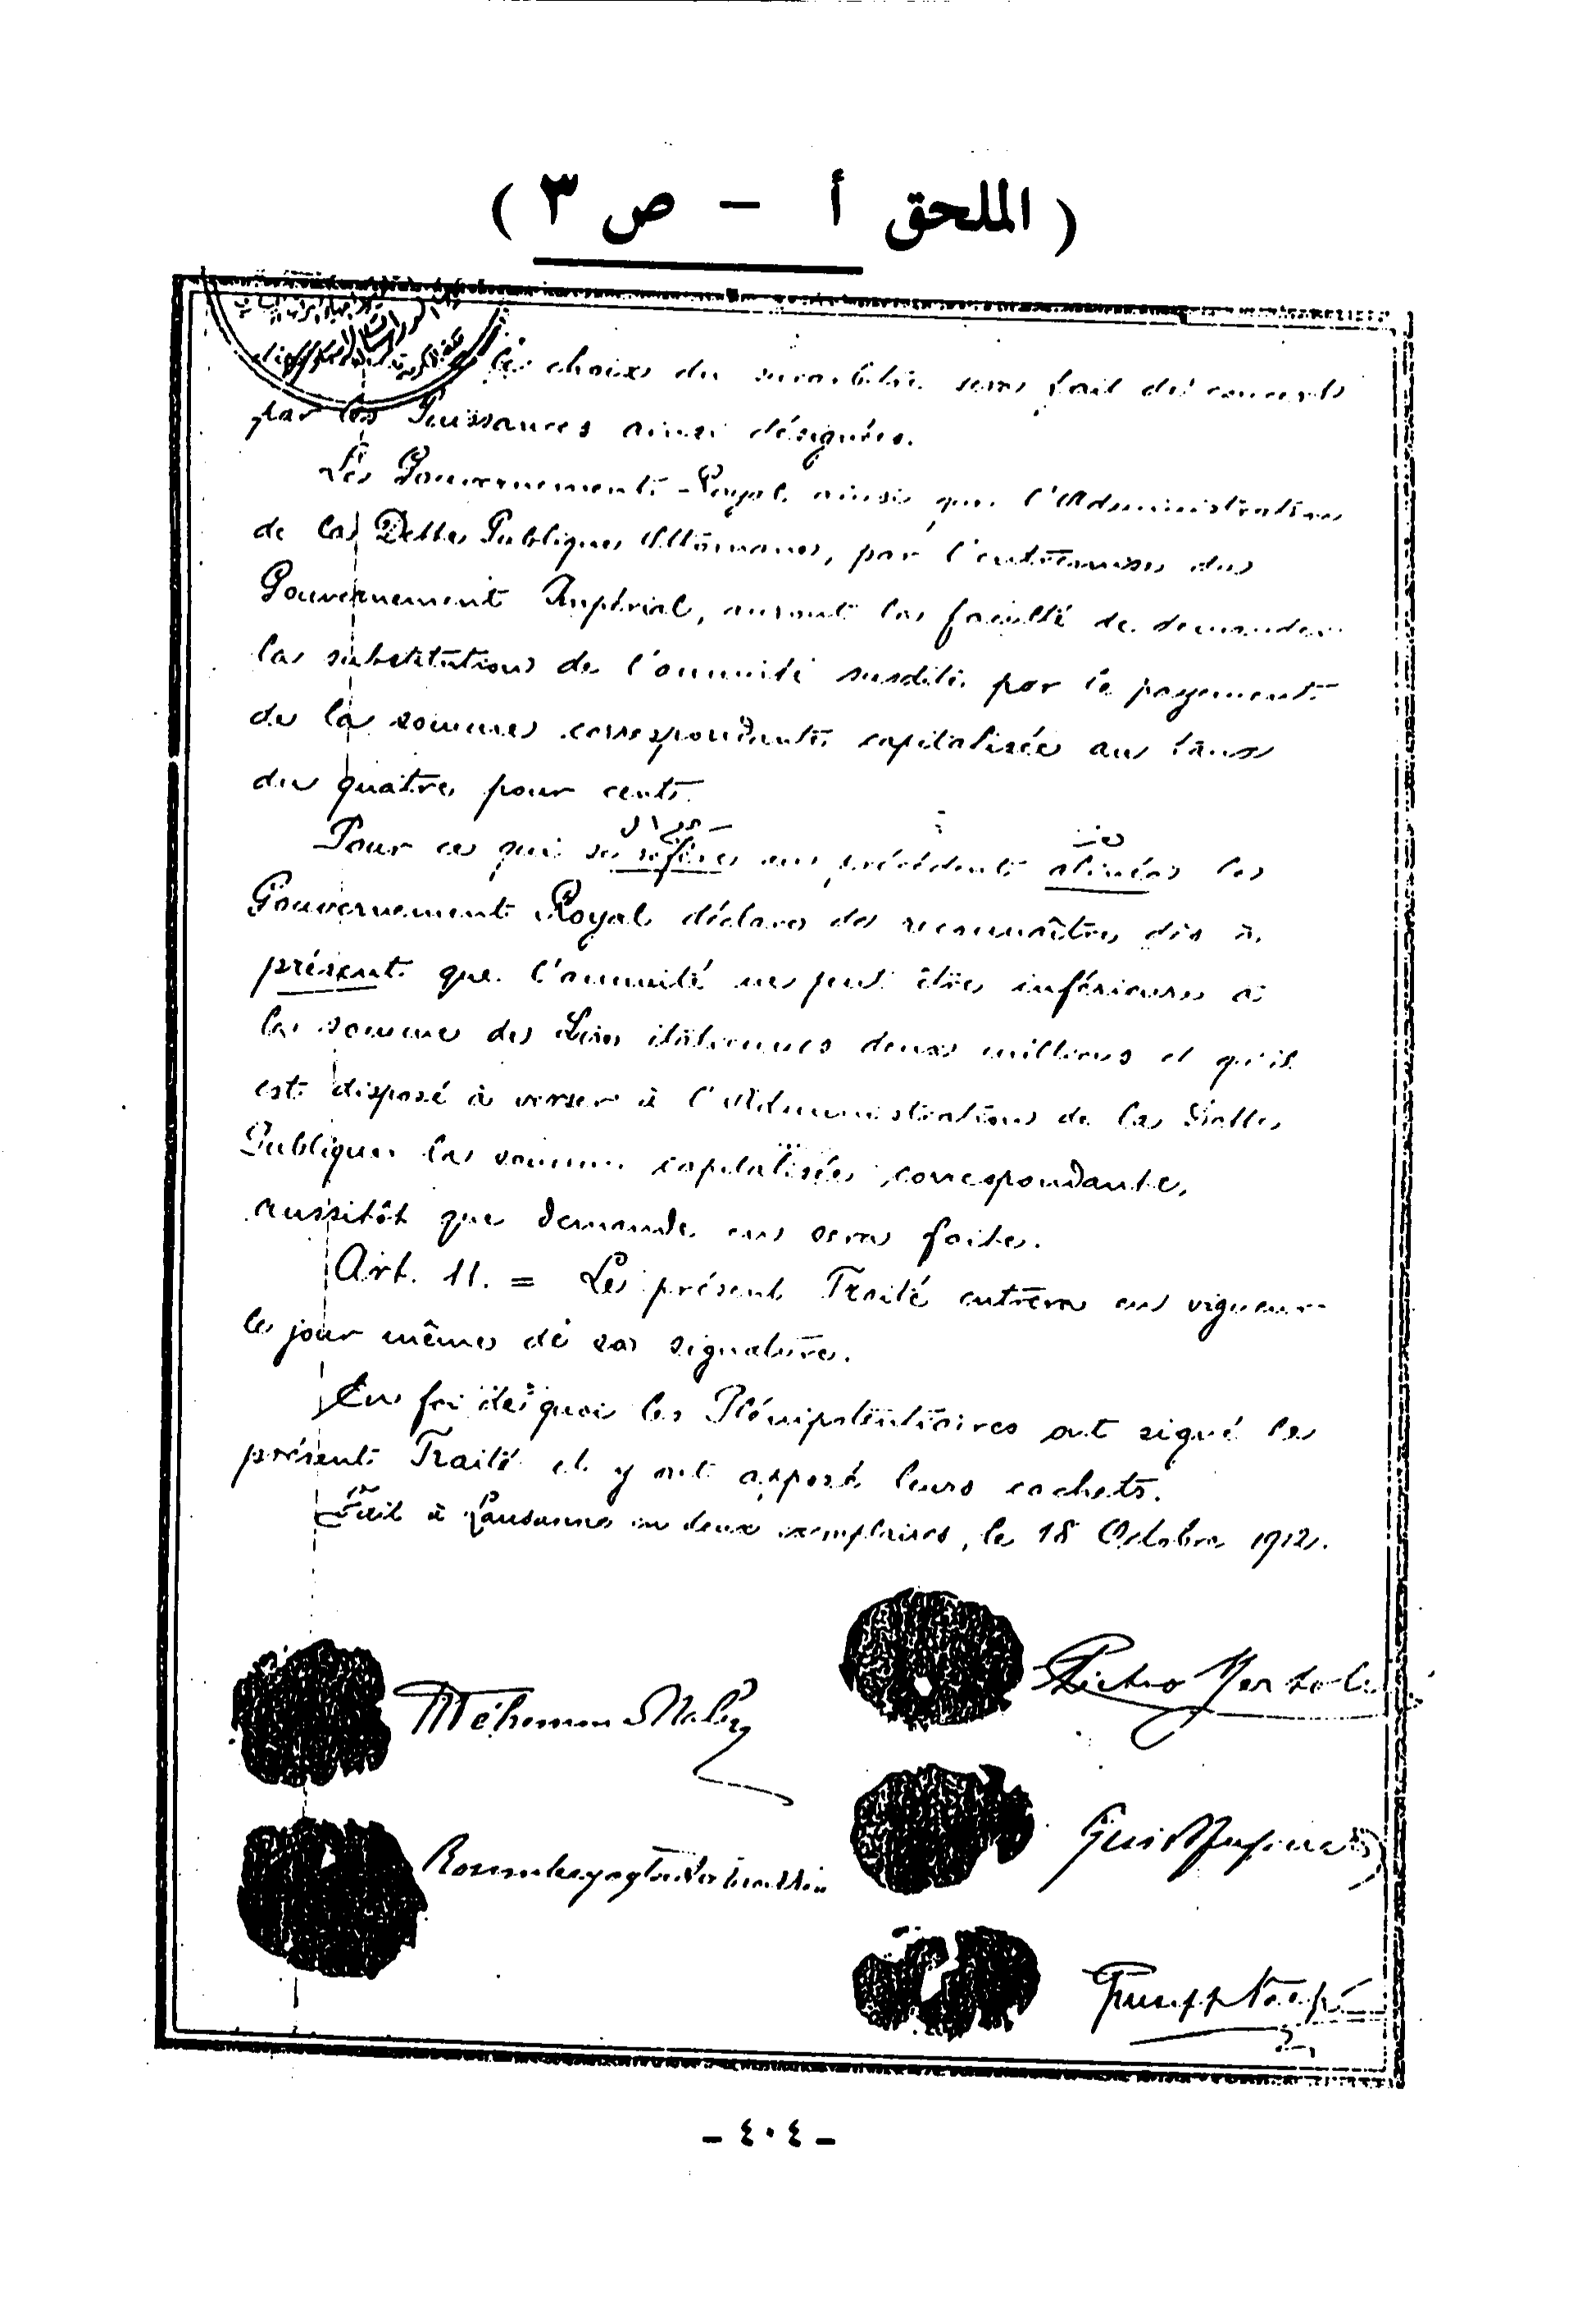 ( الملحق أ – ص ٣ )
le choix du surarbitre sera fait de concert
par les Puissances ainsi désignées.
Le Gouvernement Royal ainsi que l'Administration
de la Dette Publique Ottomane, par l'entremise du
Gouvernement Impérial, auront la faculté de demander
la substitution de l'annuité susdite par le payement
de la somme correspondante capitalisée au taux
du quatre pour cent.
Pour ce qui se réfère au précédent alinéa le
Gouvernement Royal déclare de reconnaître dès à
présent que l'annuité ne peut être inférieure à
la somme de Lires italiennes deux millions et qu'il
est disposé à verser à l'Administration de la Dette
Publique la somme capitalisée correspondante,
aussitôt que demande en sera faite.
Art. 11. = Le présent Traité entrera en vigueur
le jour même de sa signature.
En foi de quoi les Plénipotentiaires ont signé le
présent Traité et y ont apposé leurs cachets.
Fait à Lausanne en deux exemplaires, le 18 Octobre 1912.
Pietro Bertolini
Méhemmed Naby
Roumbeyoglou Fahreddin
Guido Fusinato
Giuseppe Volpi
- ٤٠٤ -